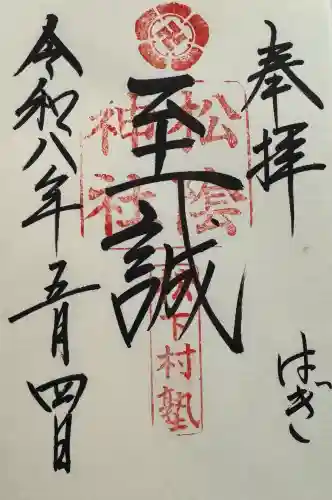 奉拝
はぎ
松陰
神社
至誠
松下村塾
令和八年五月四日